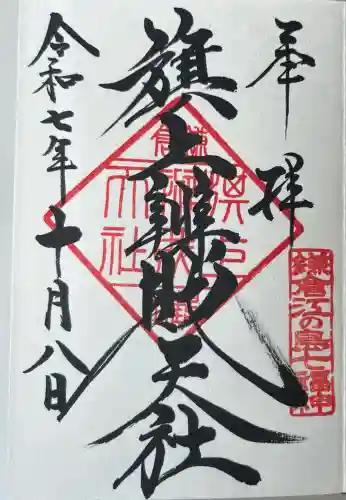 奉拝
旗上辨財天社
令和七年十月八日
鎌倉江の島七福神